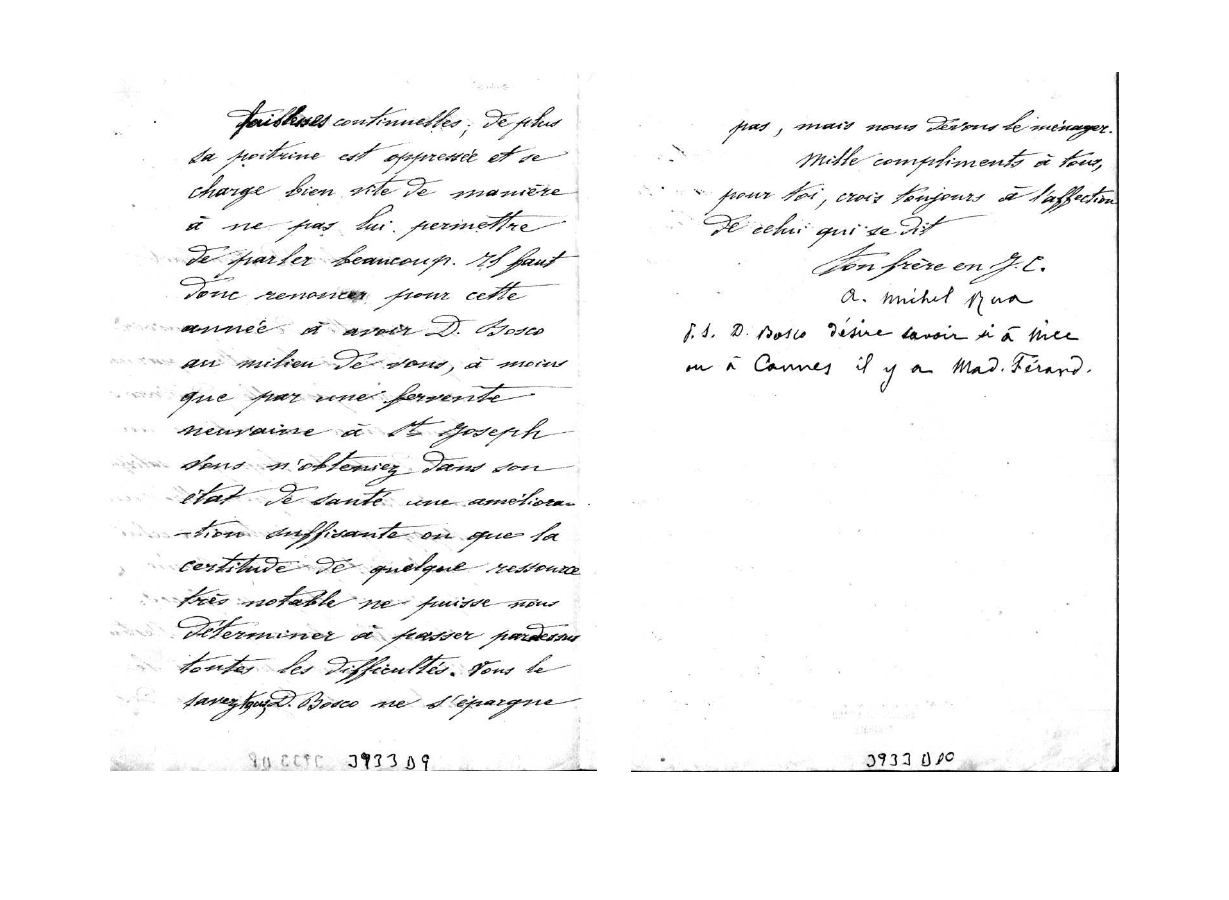 faiblesses continuelles; de plus
sa poitrine est oppressée et se
charge bien vite de manière
à ne pas lui permettre
de parler beaucoup. Il faut
donc renoncer pour cette
année à avoir D. Bosco
au milieu de vous, à moins
que par une fervente
neuvaine à St Joseph
vous n'obteniez dans son
état de santé une améliora-
-tion suffisante ou que la
certitude de quelque ressource
très notable ne puisse nous
déterminer à passer pardessus
toutes les difficultés. Vous le
savez tous, D. Bosco ne s'épargne
3933 D9
pas, mais nous devons le ménager.
Mille compliments à tous,
pour toi, crois toujours à l'affection
de celui qui se dit
Ton frère en J. C.
a. Michel Rua
P.S. D. Bosco désire savoir si à Nice
ou à Cannes il y a Mad. Férand.
3933 D10